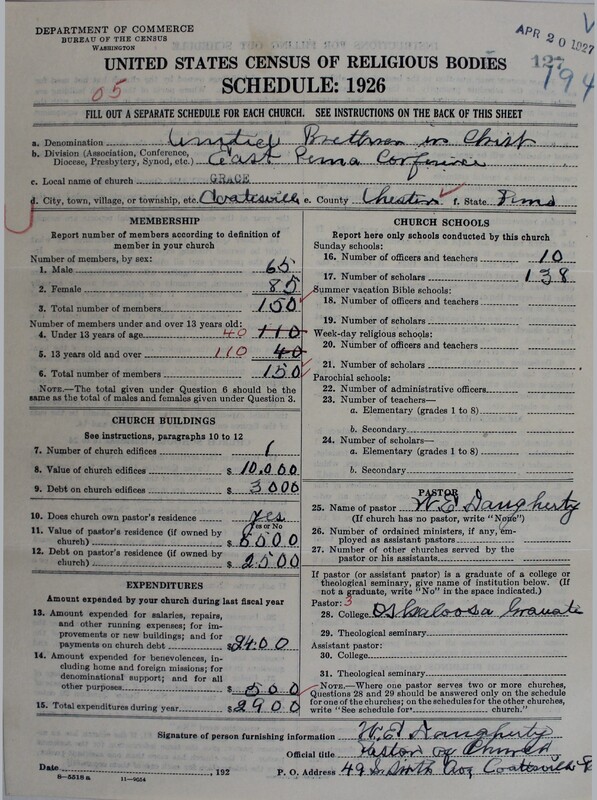 DEPARTMENT OF COMMERCE
BUREAU OF THE CENSUS
WASHINGTON
APR 20 1927
127
194
UNITED STATES CENSUS OF RELIGIOUS BODIES
SCHEDULE: 1926
05
FILL OUT A SEPARATE SCHEDULE FOR EACH CHURCH. SEE INSTRUCTIONS ON THE BACK OF THIS SHEET
a. Denomination United Brethren in Christ
b. Division (Association, Conference, Diocese, Presbytery, Synod, etc.) East Penna Conference
c. Local name of church GRACE
d. City, town, village, or township, etc. Coatesville e. County Chester f. State Penna
MEMBERSHIP
Report number of members according to definition of member in your church
Number of members, by sex:
1. Male 65
2. Female 85
3. Total number of members 150
Number of members under and over 13 years old:
4. Under 13 years of age 40 110
5. 13 years old and over 110 40
6. Total number of members 150
NOTE.—The total given under Question 6 should be the same as the total of males and females given under Question 3.
CHURCH BUILDINGS
See instructions, paragraphs 10 to 12
7. Number of church edifices 1
8. Value of church edifices $ 10,000
9. Debt on church edifices $ 3000
10. Does church own pastor's residence yes
Yes or No
11. Value of pastor's residence (if owned by church) $ 6500
12. Debt on pastor's residence (if owned by church) $ 2500
EXPENDITURES
Amount expended by your church during last fiscal year
13. Amount expended for salaries, repairs, and other running expenses; for improvements or new buildings; and for payments on church debt $ 2400
14. Amount expended for benevolences, including home and foreign missions; for denominational support; and for all other purposes $ 500
15. Total expenditures during year $ 2900
CHURCH SCHOOLS
Report here only schools conducted by this church
Sunday schools:
16. Number of officers and teachers 10
17. Number of scholars 138
Summer vacation Bible schools:
18. Number of officers and teachers
19. Number of scholars
Week-day religious schools:
20. Number of officers and teachers
21. Number of scholars
Parochial schools:
22. Number of administrative officers
23. Number of teachers—
a. Elementary (grades 1 to 8)
b. Secondary
24. Number of scholars—
a. Elementary (grades 1 to 8)
b. Secondary
PASTOR
25. Name of pastor W E Daugherty
(If church has no pastor, write "None")
26. Number of ordained ministers, if any, employed as assistant pastors
27. Number of other churches served by the pastor or his assistants
If pastor (or assistant pastor) is a graduate of a college or theological seminary, give name of institution below. (If not a graduate, write "No" in the space indicated.)
Pastor: 3
28. College Oskaloosa Graduate
29. Theological seminary
Assistant pastor:
30. College
31. Theological seminary
NOTE.—Where one pastor serves two or more churches, Questions 28 and 29 should be answered only on the schedule for one of the churches; on the schedules for the other churches, write "See schedule for church."
Signature of person furnishing information W. E Daugherty
Official title Pastor of Church
Date , 192 P. O. Address 49 Sixth Ave Coatesville
8—5518a 11—9054